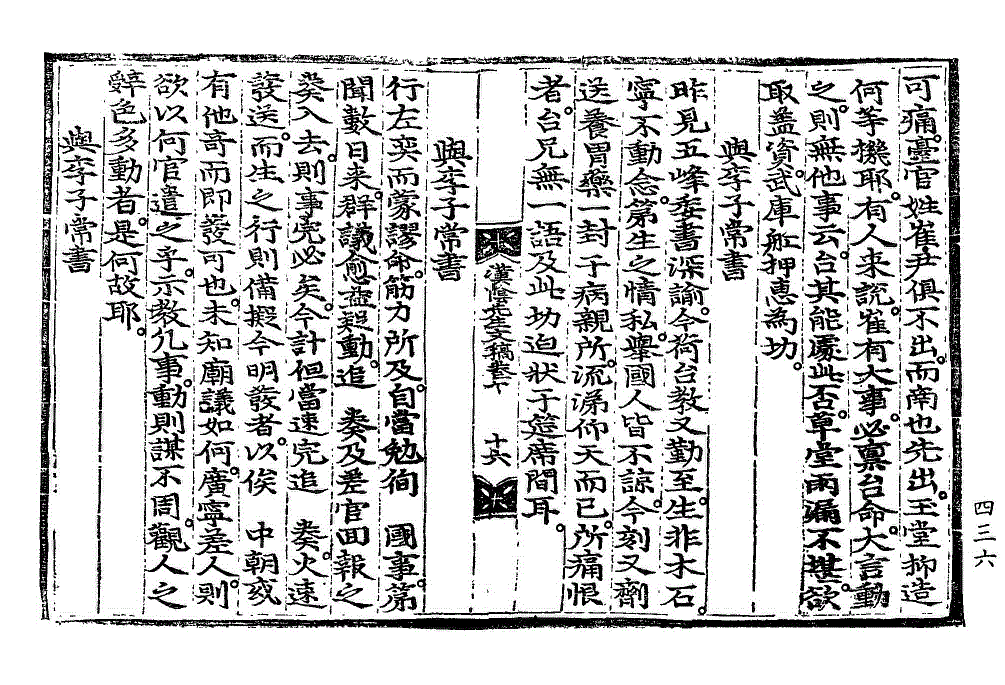 可痛。臺官姓崔尹俱不出。而南也先出。玉堂抑造
何等機耶。有人来說。崔有大事。必禀台命。大言動
之。則無他事云。台其能處此否。草堂雨漏不堪。欲
取盖資。武庫舡押惠為功。
與李子常書
昨見五峰委書深諭。今荷台教又勤至。生非木石。
寧不動念。第生之情私。舉國人皆不諒。今刻又劑
送養胃藥一封于病親所。流涕仰天而已。所痛恨
者。台兄無一語及此切迫狀于筵席間耳。
漢陰先生文稿卷十 十六
與李子常書
行左奕而蒙謬命。筋力所及。自當勉徇 國事。第
聞數日来。群議愈益疑動。追 奏及差官回報之
奏入去。則事完必矣。今計但當速完追 奏。火速
發送。而生之行則備擬今明發者。以俟 中朝或
有他奇而即發可也。未知廟議如何。廣寧差人。則
欲以何官遣之乎。示教。凡事。動則謀不周。觀人之
辭色多動者。是何故耶。
與李子常書
四三六